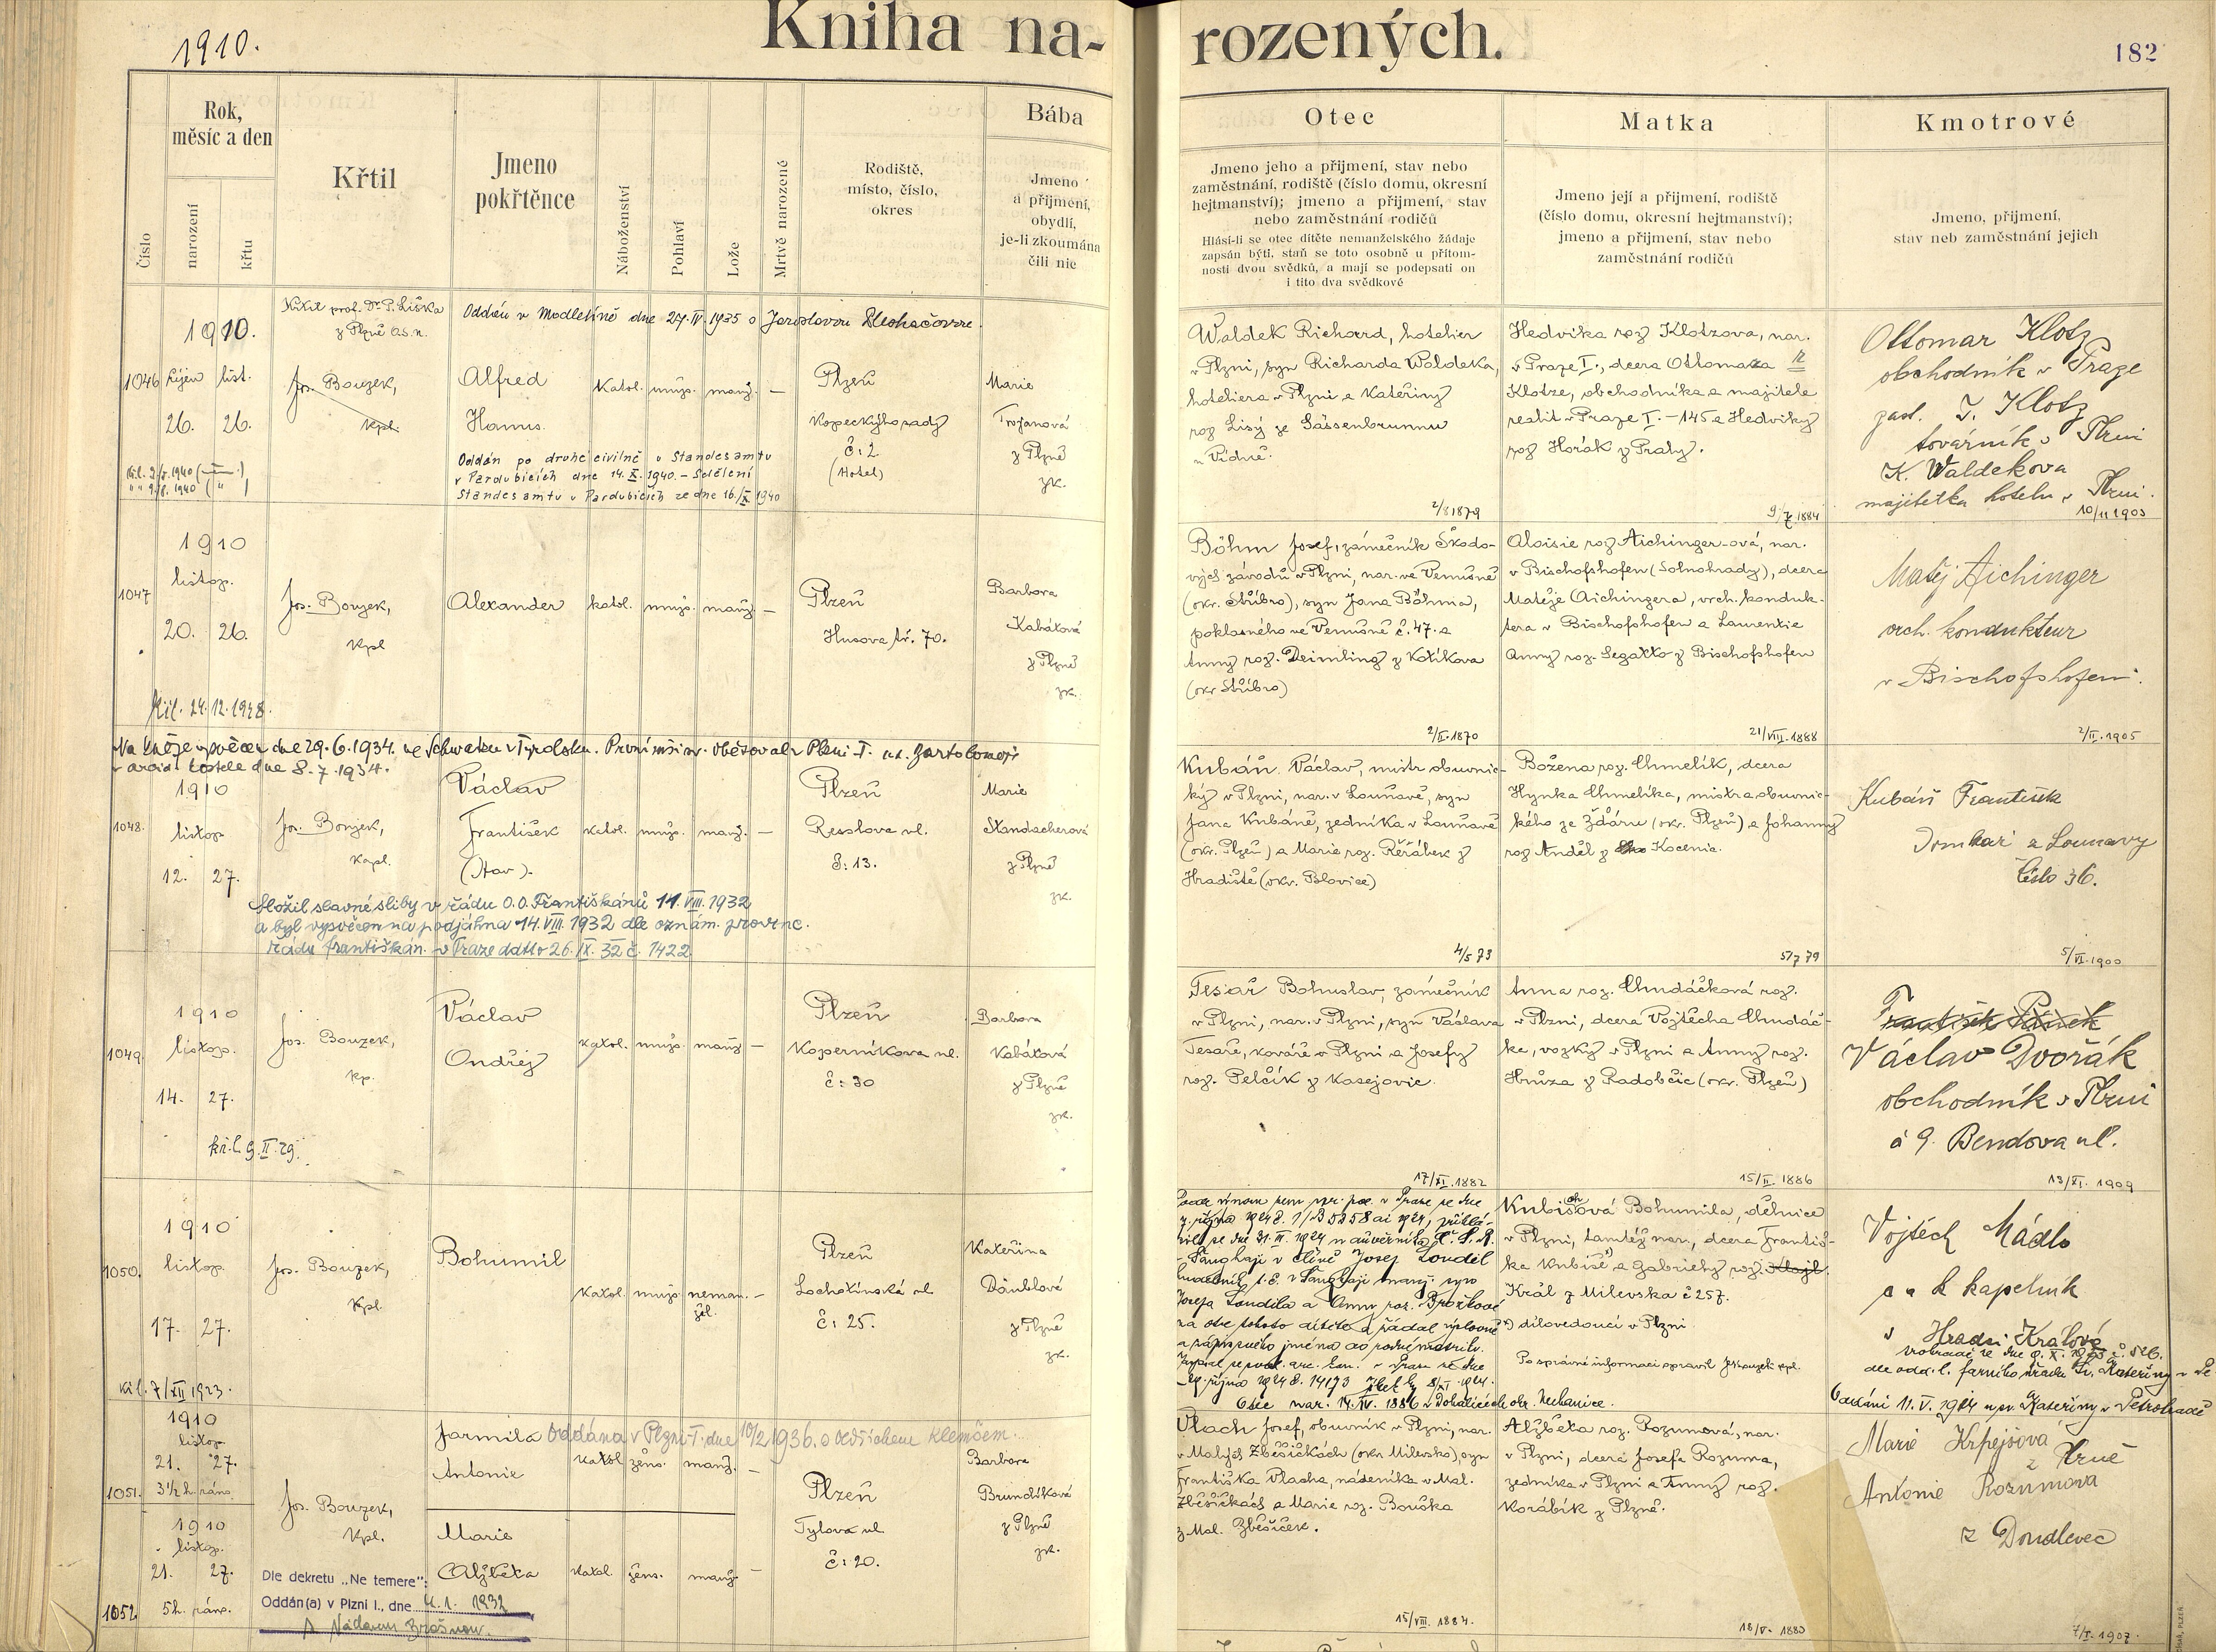 1910.
Kniha na-
rozených.
182
Číslo
Rok,
měsíc a den
narození
křtu
Křtil
Jmeno
pokřtěnce
Náboženství
Pohlaví
Lože
Mrtvě narozené
Rodiště,
místo, číslo,
okres
Bába
Jmeno
a přijmení,
obydlí,
je-li zkoumána
čili nic
Otec
Jmeno jeho a přijmení, stav nebo
zaměstnání, rodiště (číslo domu, okresní
hejtmanství); jmeno a přijmení, stav
nebo zaměstnání rodičů
Hlásí-li se otec dítěte nemanželského žádaje
zapsán býti, staň se toto osobně u přítom-
nosti dvou svědků, a mají se podepsati on
i tito dva svědkové
Matka
Jmeno její a přijmení, rodiště
(číslo domu, okresní hejtmanství);
jmeno a přijmení, stav nebo
zaměstnání rodičů
Kmotrové
Jmeno, přijmení,
stav neb zaměstnání jejich
Křtil prof. Dr. P. Liška
z Plzně
Oddán v Modletíně dne 27.IV.1935 s Jaroslavou
1910.
1046 říjen list.
26. 26.
Jos. Bouzek,
Kpl.
Alfred
Hanus
katol. muž. manž. —
Plzeň
Kopeckýho sady
č: 2
(Hotel)
Marie
Trojanová
z Plzně
zk.
Oddán po druhé civilně u Standesamtu
v Pardubicích dne 14.X.1940. - Sdělení
Standesamtu v Pardubicích ze dne 16./X.1940
Waldek Richard, hotelier
v Plzni, syn Richarda Waldeka,
hoteliera v Plzni a Kateřiny
roz Lisý ze Gässenbrunnu
u Vídně.
2/8 1879
Hedvika roz Klotzova, nar.
v Praze I., dcera Ottomara
Klotze, obchodníka a majitele
realit v Praze I. – 145 a Hedviky
roz Horák z Prahy.
9/7 1884
Ottomar Klotz
obchodník v Praze
zast. J. Klotz
továrník v Plzni
K. Waldekova
majitelka hotelu v Plzni.
10/11 1903
1910
listop.
1047
20. 26.
Jos. Bouzek,
Kpl
Alexander
katol. muž. manž —
Plzeň
Husova tř. 70.
Barbora
Kabátová
z Plzně
zk.
24.12.1928.
Böhm Josef, zámečník Škodo-
vých závodů v Plzni, nar. ve Vemšně
(okr. Stříbro), syn Jana Böhma,
poklasného ve Vemšně č. 47. a
Anny roz. Deimling z Kotíkova
(okr Stříbro)
2/II.1870
Aloisie roz Aichinger-ová, nar.
v Bischofshofen (Solnohrady), dcera
Matěje Aichingera, vrch. konduk-
tera v Bischofshofen a Laurentie
Anny roz. Segatto z Bischofshofen
21/VIII.1888
Matěj Aichinger
vrch. kondukteur
v Bischofshofen.
2/II.1905
Na kněze vysvěcen dne 29.6.1934. ve Schwazu v Tyrolsku. První mši sv. obětoval v Plzni-I. u sv. Bartoloměje
v arcid. kostele dne 8.7.1934.
1910
1048. listop
12. 27.
Jos. Bouzek,
Kapl.
Václav
František
katol. muž. manž. —
Plzeň
Resslova ul.
č: 13.
Marie
Standacherová
z Plzně
zk.
Složil slavné sliby v řádu O.O. Františkánů 14.VIII.1932
a byl vysvěcen na podjáhna 14.VIII.1932 dle oznám. provinc.
řádu františkán. v Praze ddtto 26.IX.32 č. 1422
Kubáň Václav, mistr obuvnic-
ký v Plzni, nar. v Louňavě, syn
Jana Kubáně, zedníka v Louňavě
(okr. Plzeň) a Marie roz. Řeřábek z
Hradiště (okr. Blovice)
4/5 73
Božena roz. Chmelík, dcera
Hynka Chmelíka, mistra obuvnic-
kého ze Žďáru (okr. Plzeň) a Johanny
roz Anděl z Kocenic.
5/7 79
Kubáň František
Domkář z Lounavy
číslo 36.
5/VI.1900
1910
1049. listop.
14. 27.
Jos. Bouzek,
Kp.
Václav
Ondřej
katol. muž. manž —
Plzeň
Koperníkova ul.
č: 30
Barbora
Kabátová
z Plzně
zk.
9.II.29.
Tesař Bohuslav, zámečník
v Plzni, nar. v Plzni, syn Václava
Tesaře, kováře v Plzni a Josefy
roz. Pelčík z Kasejovic.
17/XI.1882
Anna roz. Chudáčková roz.
v Plzni, dcera Vojtěcha Chudáč-
ka, vozky v Plzni a Anny roz.
Hrůza z Radobčic (okr. Plzeň)
15/II.1886
František
Václav Dvořák
obchodník v Plzni
č 9. Bendova ul.
13/XI.1909
1910
1050. listop.
17. 27.
Jos. Bouzek,
Kpl.
Bohumil
katol. muž. neman-
žel. —
Plzeň
Lochotínská ul.
č: 25.
Kateřina
Däublová
z Plzně
zk.
7/XII 1923.
Šanghaji v Číně Josef Loudil
Josefa Loudila a Anny roz. Brožkové
za otce tohoto dítěte a žádal
Otec nar. 14.IV.1886 v Dohalicích okr. Nechanice.
Kubišová Bohumila, dělnice
v Plzni, tamtéž nar., dcera Františ-
ka Kubiše a Gabriely roz.
Král z Milevska č 257.
dílovedoucí v Plzni.
Po správné informaci opravil Jos Bouzek kpl.
Vojtěch Mádlo
c a k kapelník
v Hradci Králové
Oddáni 11.V.1924 u sv. Kateřiny v Petrohradě
1910
listop.
21. 27.
1051. 3½ h. ráno
Jarmila
Antonie
Oddána v Plzni-I. dne 10/2 1936. s Oldřichem Klemčem.
katol žens. manž. —
Jos. Bouzek,
Kpl.
Plzeň
Tylova ul
č: 20.
Barbora
Brundíková
z Plzně
zk.
1910
listop.
21. 27.
1052. 5 h. ráno.
Marie
Alžběta
katol. žens. manž. —
Dle dekretu „Ne temere":
Oddán(a) v Plzni I., dne 4.1. 1932
Vlach Josef, obuvník v Plzni, nar.
v Malých Zběšičkách (okr Milevsko), syn
Františka Vlacha, nádeníka v Mal.
Zběšičkách a Marie roz. Bouška
z Mal. Zběšiček.
15/VIII.1884.
Alžběta roz. Rozumová, nar.
v Plzni, dcera Josefa Rozuma,
zedníka v Plzni a Anny roz.
Korábík z Plzně.
18/V.1883
Marie Krpejšová
z Plzně
Antonie Rozumová
z Doudlevec
7/I.1907.